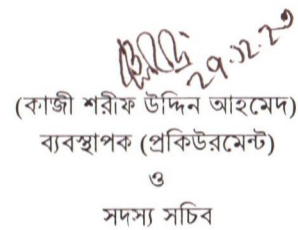 ২৭.১২.২৩
(কাজী শরীফ উদ্দিন আহমেদ)
ব্যবস্থাপক (প্রকিউরমেন্ট)
ও
সদস্য সচিব